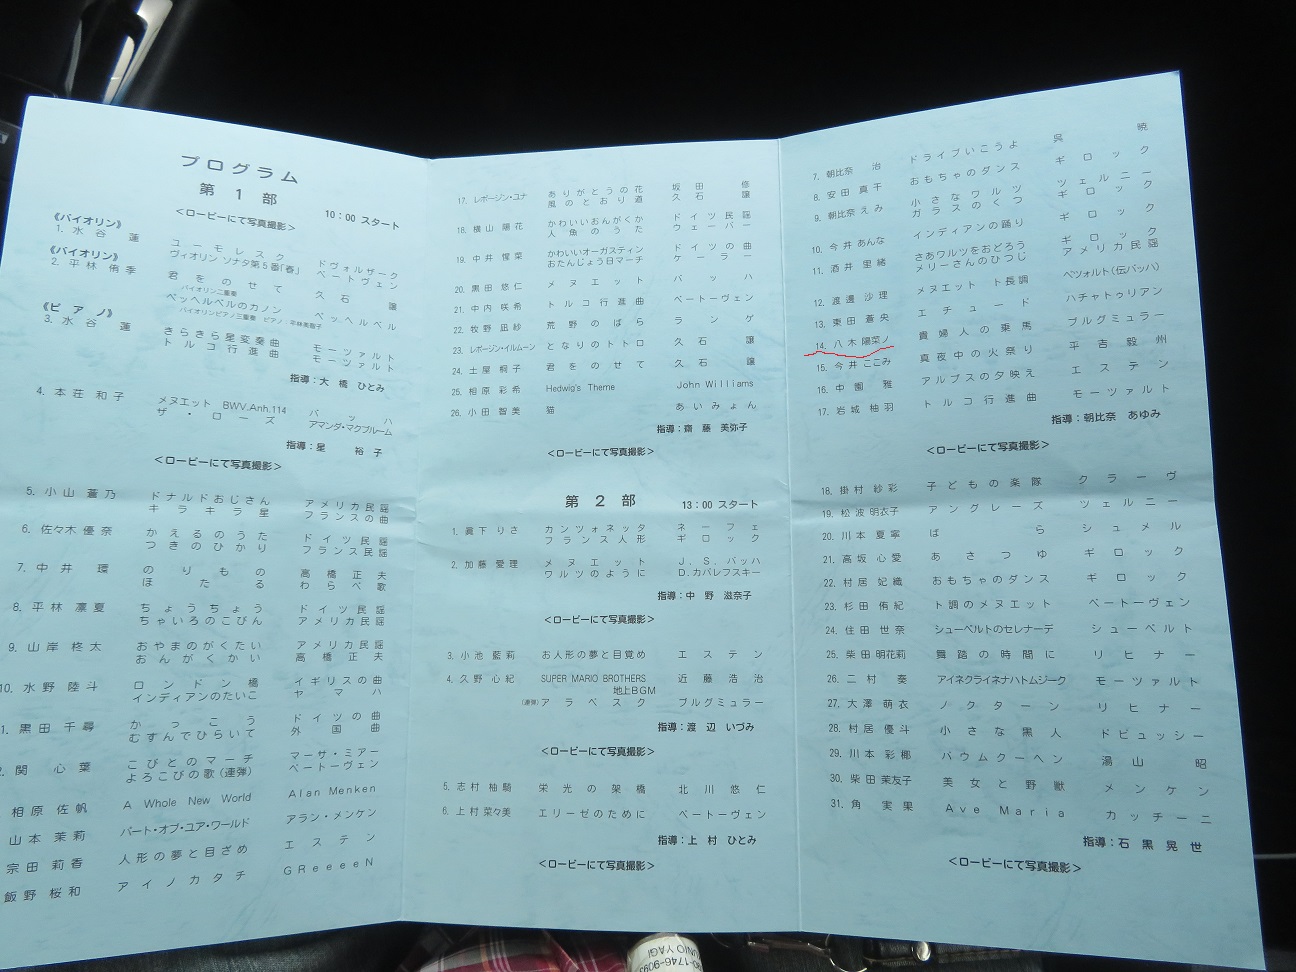 プログラム
第1部
10:00 スタート
<ロービーにて写真撮影>
《バイオリン》
1. 水谷 蓮 ユーモレスク ドヴォルザーク
ヴィオリン ソナタ第5番「春」 ベートーヴェン
《バイオリン》
2. 平林 侑季 君をのせて 久石 譲
バイオリン二重奏
ペッヘルベルのカノン ペッヘルベル
《ピアノ》
3. 水谷 蓮 きらきら星変奏曲 モーツァルト
トルコ行進曲 モーツァルト
指導:大橋 ひとみ
4. 本荘 和子 メヌエット BWV.Anh.114 バッハ
ザ・ローズ アマンダ・マクブルーム
指導:星 裕子
<ロービーにて写真撮影>
5. 小山 蒼乃 ドナルドおじさん アメリカ民謡
キラキラ星 フランスの曲
6. 佐々木 優奈 かえるのうた ドイツ民謡
つきのひかり フランス民謡
7. 中井 環 のりもの 高橋正夫
ほたる わらべ歌
8. 平林 凛夏 ちょうちょう ドイツ民謡
ちゃいろのこびん アメリカ民謡
9. 山岸 柊太 おやまのがくたい アメリカ民謡
おんがくかい 高橋正夫
10. 水野 陸斗 ロンドン橋 イギリスの曲
インディアンのたいこ ヤマハ
1. 黒田 千尋 かっこう ドイツの曲
むすんでひらいて 外国曲
関 心葉 こびとのマーチ マーサ・ミアー
よろこびの歌(連弾) ベートーヴェン
相原 佐帆 A Whole New World Alan Menken
山本 茉莉 パート・オブ・ユア・ワールド アラン・メンケン
宗田 莉香 人形の夢と目ざめ エステン
飯野 桜和 アイノカタチ GReeeeN
17. レボージン・ユナ ありがとうの花 坂田 修
風のとおり道 久石 譲
18. 横山 陽花 かわいいおんがくか ドイツ民謡
人魚のうた ウェーバー
19. 中井 惺菜 かわいいオーガスティン ドイツの曲
おたんじょう日マーチ ケーラー
20. 黒田 悠仁 メヌエット バッハ
21. 中内 咲希 トルコ行進曲 ベートーヴェン
22. 牧野 凪紗 荒野のばら ランゲ
23. レボージン・イルムーン となりのトトロ 久石 譲
24. 土屋 桐子 君をのせて 久石 譲
25. 相原 彩希 Hedwig's Theme John Williams
26. 小田 智美 猫 あいみょん
指導:齋藤 美弥子
<ロービーにて写真撮影>
第2部 13:00 スタート
1. 眞下 りさ カンツォネッタ ネーフェ
フランス人形 ギロック
2. 加藤 愛理 メヌエット J.S.バッハ
ワルツのように D.カバレフスキー
指導:中野 滋奈子
<ロービーにて写真撮影>
3. 小池 藍莉 お人形の夢と目覚め エステン
4. 久野 心紀 SUPER MARIO BROTHERS 近藤浩治
地上BGM
(連弾) アラベスク ブルグミュラー
指導:渡辺 いづみ
<ロービーにて写真撮影>
5. 志村 柚騎 栄光の架橋 北川悠仁
6. 上村 菜々美 エリーゼのために ベートーヴェン
指導:上村 ひとみ
<ロービーにて写真撮影>
7. 朝比奈 治 ドライブいこうよ 呉 暁
8. 安田 真千 おもちゃのダンス ギロック
9. 朝比奈 えみ 小さなワルツ ツェルニー
ガラスのくつ ギロック
10. 今井 あんな インディアンの踊り ギロック
11. 酒井 里緒 さあワルツをおどろう ギロック
メリーさんのひつじ アメリカ民謡
12. 渡邊 沙理 メヌエット ト長調 ペツォルト(伝バッハ)
13. 東田 蒼央 エチュード ハチャトゥリアン
14. 八木 陽菜ノ 貴婦人の乗馬 ブルグミュラー
15. 今井 ここみ 真夜中の火祭り 平吉毅州
16. 中園 雅 アルプスの夕映え エステン
17. 岩城 柚羽 トルコ行進曲 モーツァルト
指導:朝比奈 あゆみ
<ロービーにて写真撮影>
18. 掛村 紗彩 子どもの楽隊 クラーヴ
19. 松波 明衣子 アングレーズ ツェルニー
20. 川本 夏寧 ばら シュメル
21. 高坂 心愛 あさつゆ ギロック
22. 村居 妃織 おもちゃのダンス ギロック
23. 杉田 侑紀 ト調のメヌエット ベートーヴェン
24. 住田 世奈 シューベルトのセレナーデ シューベルト
25. 柴田 明花莉 舞踏の時間に リヒナー
26. 二村 奏 アイネクライネナハトムジーク モーツァルト
27. 大澤 萌衣 ノクターン リヒナー
28. 村居 優斗 小さな黒人 ドビュッシー
29. 川本 彩椰 バウムクーヘン 湯山 昭
30. 柴田 茉友子 美女と野獣 メンケン
31. 角 実果 Ave Maria カッチーニ
指導:石黒 晃世
<ロービーにて写真撮影>
0-1746-909
NIO YAGI